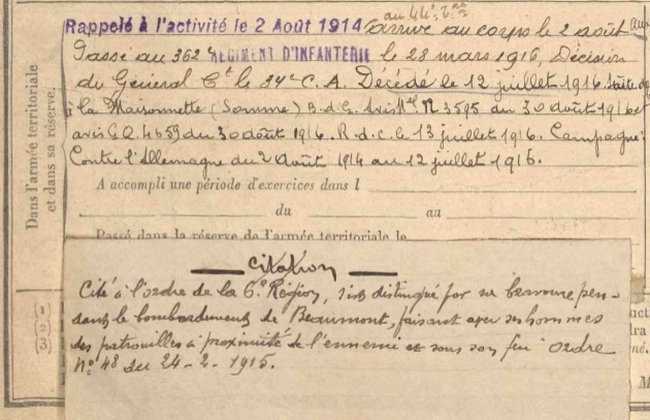 au 44e
Rappelé à l'activité le 2 Août 1914 arrivé au corps le 2 août
Passé au 362 RÉGIMENT D'INFANTERIE le 28 mars 1916, Décision
du Général Ct le 34e C.A. Décédé le 12 juillet 1916. Suite
à la Maisonnette (Somme) B.d.G. Avis Mel N 3595 du 30 août 1916 et
avis G.Q. 4659 du 30 août 1916. R.d.c. le 13 juillet 1916. Campagne
Contre l'Allemagne du 2 Août 1914 au 12 juillet 1916.
Dans l'armée territoriale
et dans sa réserve.
A accompli une période d'exercices dans l
du au
Passé dans la réserve de l'armée territoriale le
Citation
Cité à l'ordre de la 6e Région, s'est distingué par sa bravoure pen-
dant le bombardement de Beaumont, faisant avec ses hommes
des patrouilles à proximité de l'ennemi et sous son feu ordre
N° 48 du 24-2-1915.
(1)
(2)
(3)